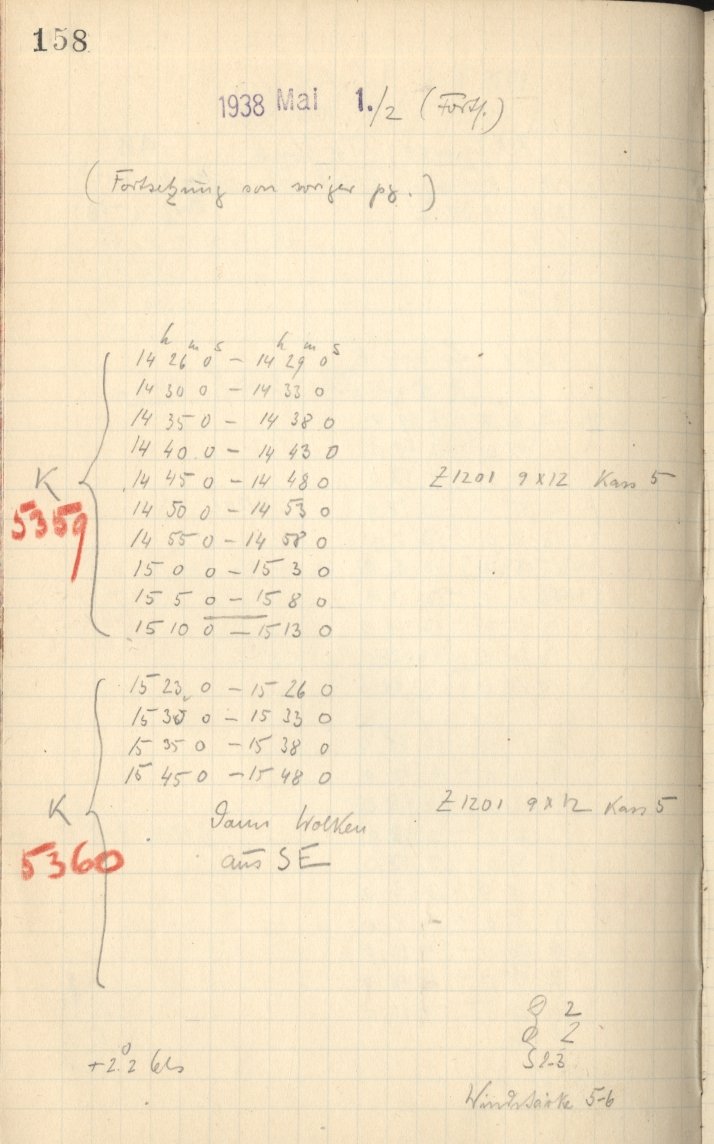 158
1938 Mai 1./2 (Forts.)
(Fortsetzung von voriger pg.)
h m s h m s
14 26 0 – 14 29 0
14 30 0 – 14 33 0
14 35 0 – 14 38 0
14 40 0 – 14 43 0
K 14 45 0 – 14 48 0 Z1201 9x12 Kass 5
5359 14 50 0 – 14 53 0
14 55 0 – 14 58 0
15 0 0 – 15 3 0
15 5 0 – 15 8 0
15 10 0 – 15 13 0
15 23 0 – 15 26 0
15 30 0 – 15 33 0
15 35 0 – 15 38 0
15 45 0 – 15 48 0
K Dann Wolken Z1201 9x12 Kass 5
5360 aus SE
2
2
+2.°2 Cels S 2-3
Windstärke 5-6